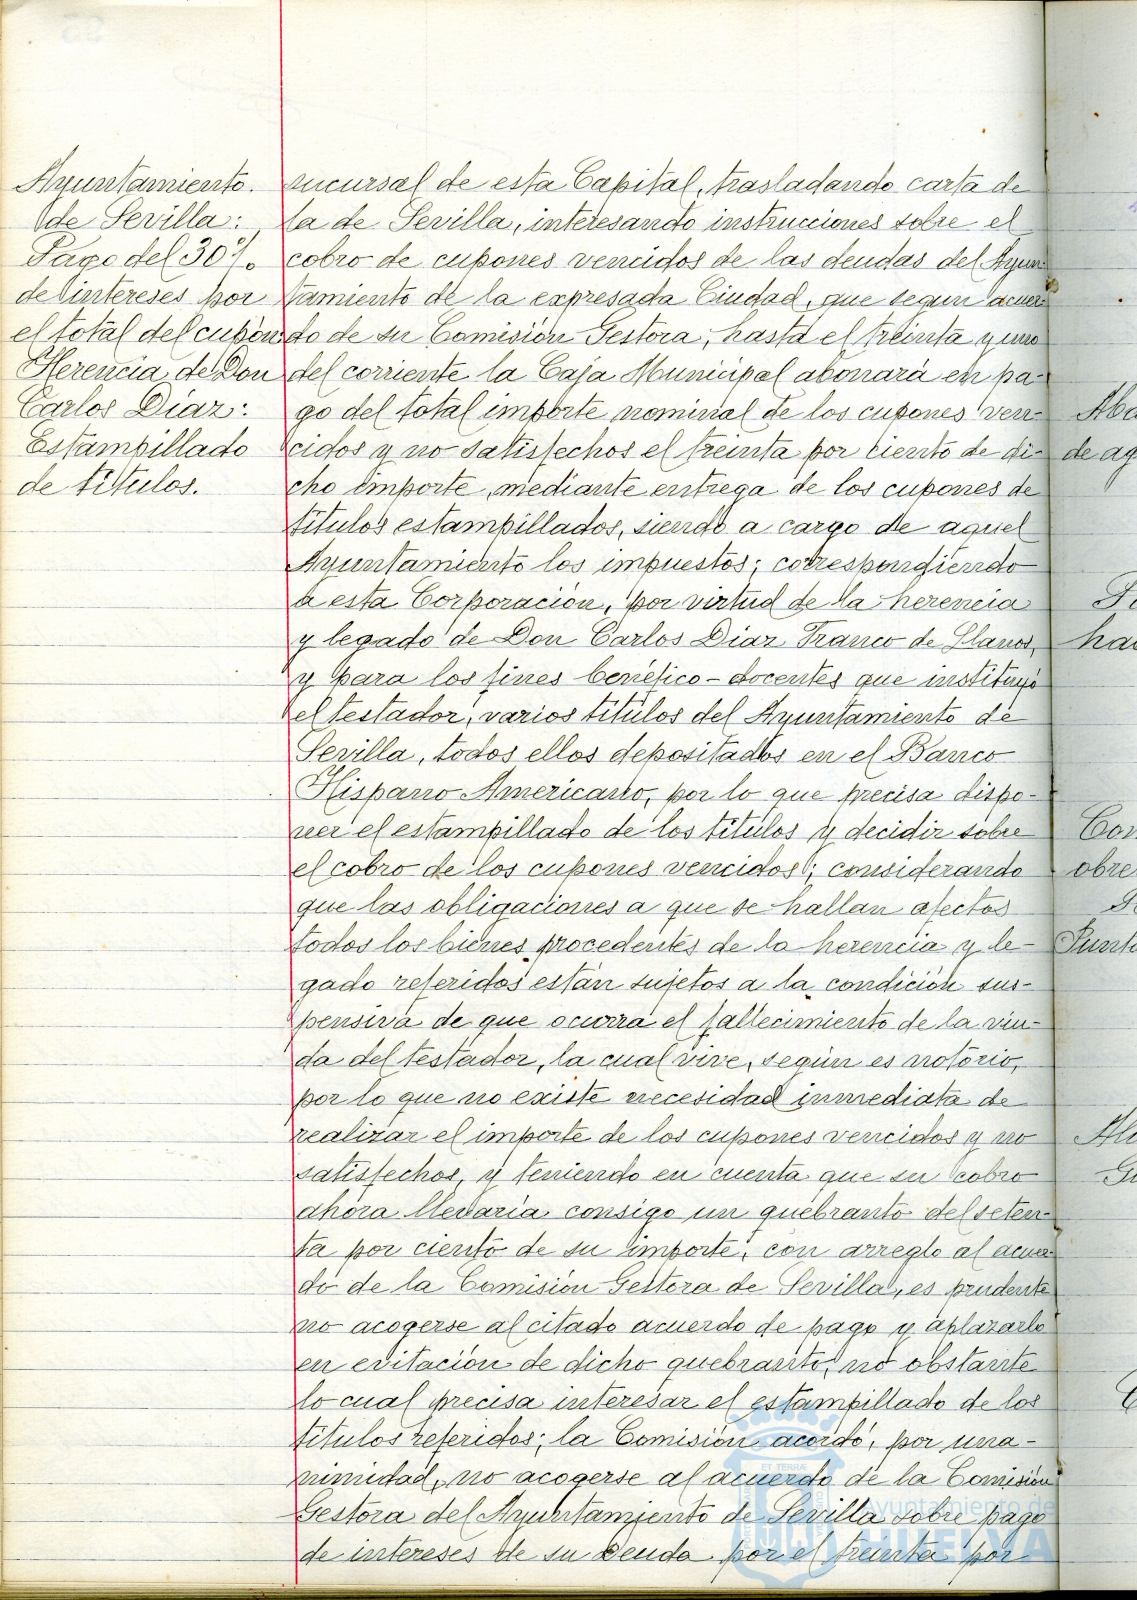 Ayuntamiento.
de Sevilla:
Pago del 30%
de intereses por
el total del cupón
Herencia de Don
Carlos Díaz:
Estampillado
de títulos.
sucursal de esta Capital, trasladando carta de
la de Sevilla, interesando instrucciones sobre el
cobro de cupones vencidos de las deudas del Ayun-
tamiento de la expresada Ciudad, que segun acuer-
do de su Comisión Gestora, hasta el treinta y uno
del corriente la Caja Municipal abonará en pa-
go del total importe nominal de los cupones ven-
cidos y no satisfechos el treinta por ciento de di-
cho importe, mediante entrega de los cupones de
títulos estampillados, siendo a cargo de aquel
Ayuntamiento los impuestos; correspondiendo
a esta Corporación, por virtud de la herencia
y legado de Don Carlos Díaz Franco de Llanos,
y para los fines benéfico-docentes que instituyó
el testador, varios títulos del Ayuntamiento de
Sevilla, todos ellos depositados en el Banco
Hispano Americano, por lo que precisa dispo-
ner el estampillado de los títulos y decidir sobre
el cobro de los cupones vencidos; considerando
que las obligaciones a que se hallan afectos
todos los bienes procedentes de la herencia y le-
gado referidos están sujetos a la condición sus-
pensiva de que ocurra el fallecimiento de la viu-
da del testador, la cual vive, según es notorio,
por lo que no existe necesidad inmediata de
realizar el importe de los cupones vencidos y no
satisfechos, y teniendo en cuenta que su cobro
ahora llevaría consigo un quebranto del seten-
ta por ciento de su importe, con arreglo al acuer-
do de la Comisión Gestora de Sevilla, es prudente
no acogerse al citado acuerdo de pago y aplazarlo
en evitación de dicho quebranto, no obstante
lo cual precisa interesar el estampillado de los
títulos referidos; la Comisión acordó, por una-
nimidad, no acogerse al acuerdo de la Comisión
Gestora del Ayuntamiento de Sevilla sobre pago
de intereses de su Deuda por el treinta por
Ayuntamiento de
HUELVA